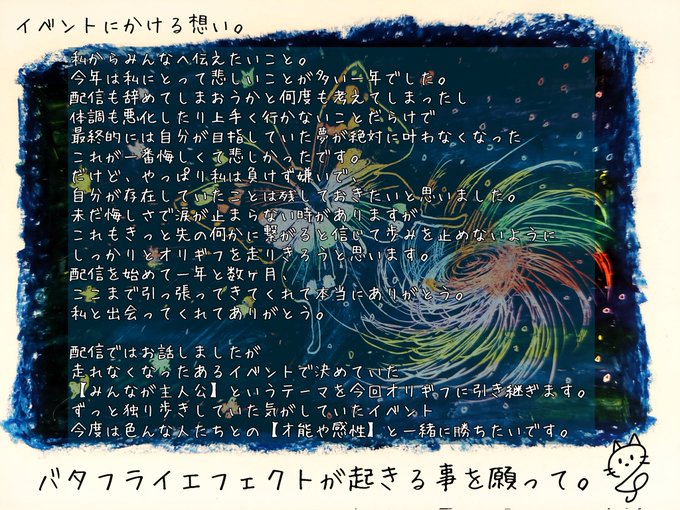 イベントにかける想い。
私からみんなへ伝えたいこと。
今年は私にとって悲しいことが多い一年でした。
配信も辞めてしまおうかと何度も考えてしまったし
体調も悪化したり上手く行かないことだらけで
最終的には自分が目指していた夢が絶対に叶わなくなった
これが一番悔しくて悲しかったです。
だけど、やっぱり私は負けず嫌いで、
自分が存在していたことは残しておきたいと思いました。
未だ悔しさで涙が止まらない時がありますが
これもきっと先の何かに繋がると信じて歩みを止めないように
しっかりとオリギフを走りきろうと思います。
配信を始めて一年と数ヶ月、
ここまで引っ張ってきてくれて本当にありがとう。
私と出会ってくれてありがとう。
配信ではお話しましたが
走れなくなったあるイベントで決めていた
【みんなが主人公】というテーマを今回オリギフに引き継ぎます。
ずっと独り歩きしていた気がしていたイベント
今度は色んな人たちとの【才能や感性】と一緒に勝ちたいです。
バタフライエフェクトが起きる事を願って。